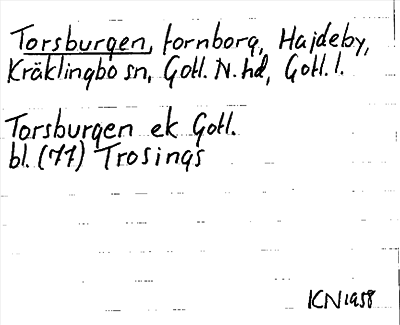 Torsburgen, fornborg, Hajdeby,
Kräklingbo sn, Gotl. N. hd, Gotl. l.
Torsburgen ek Gotl.
bl. (71) Trosings
KN 1958